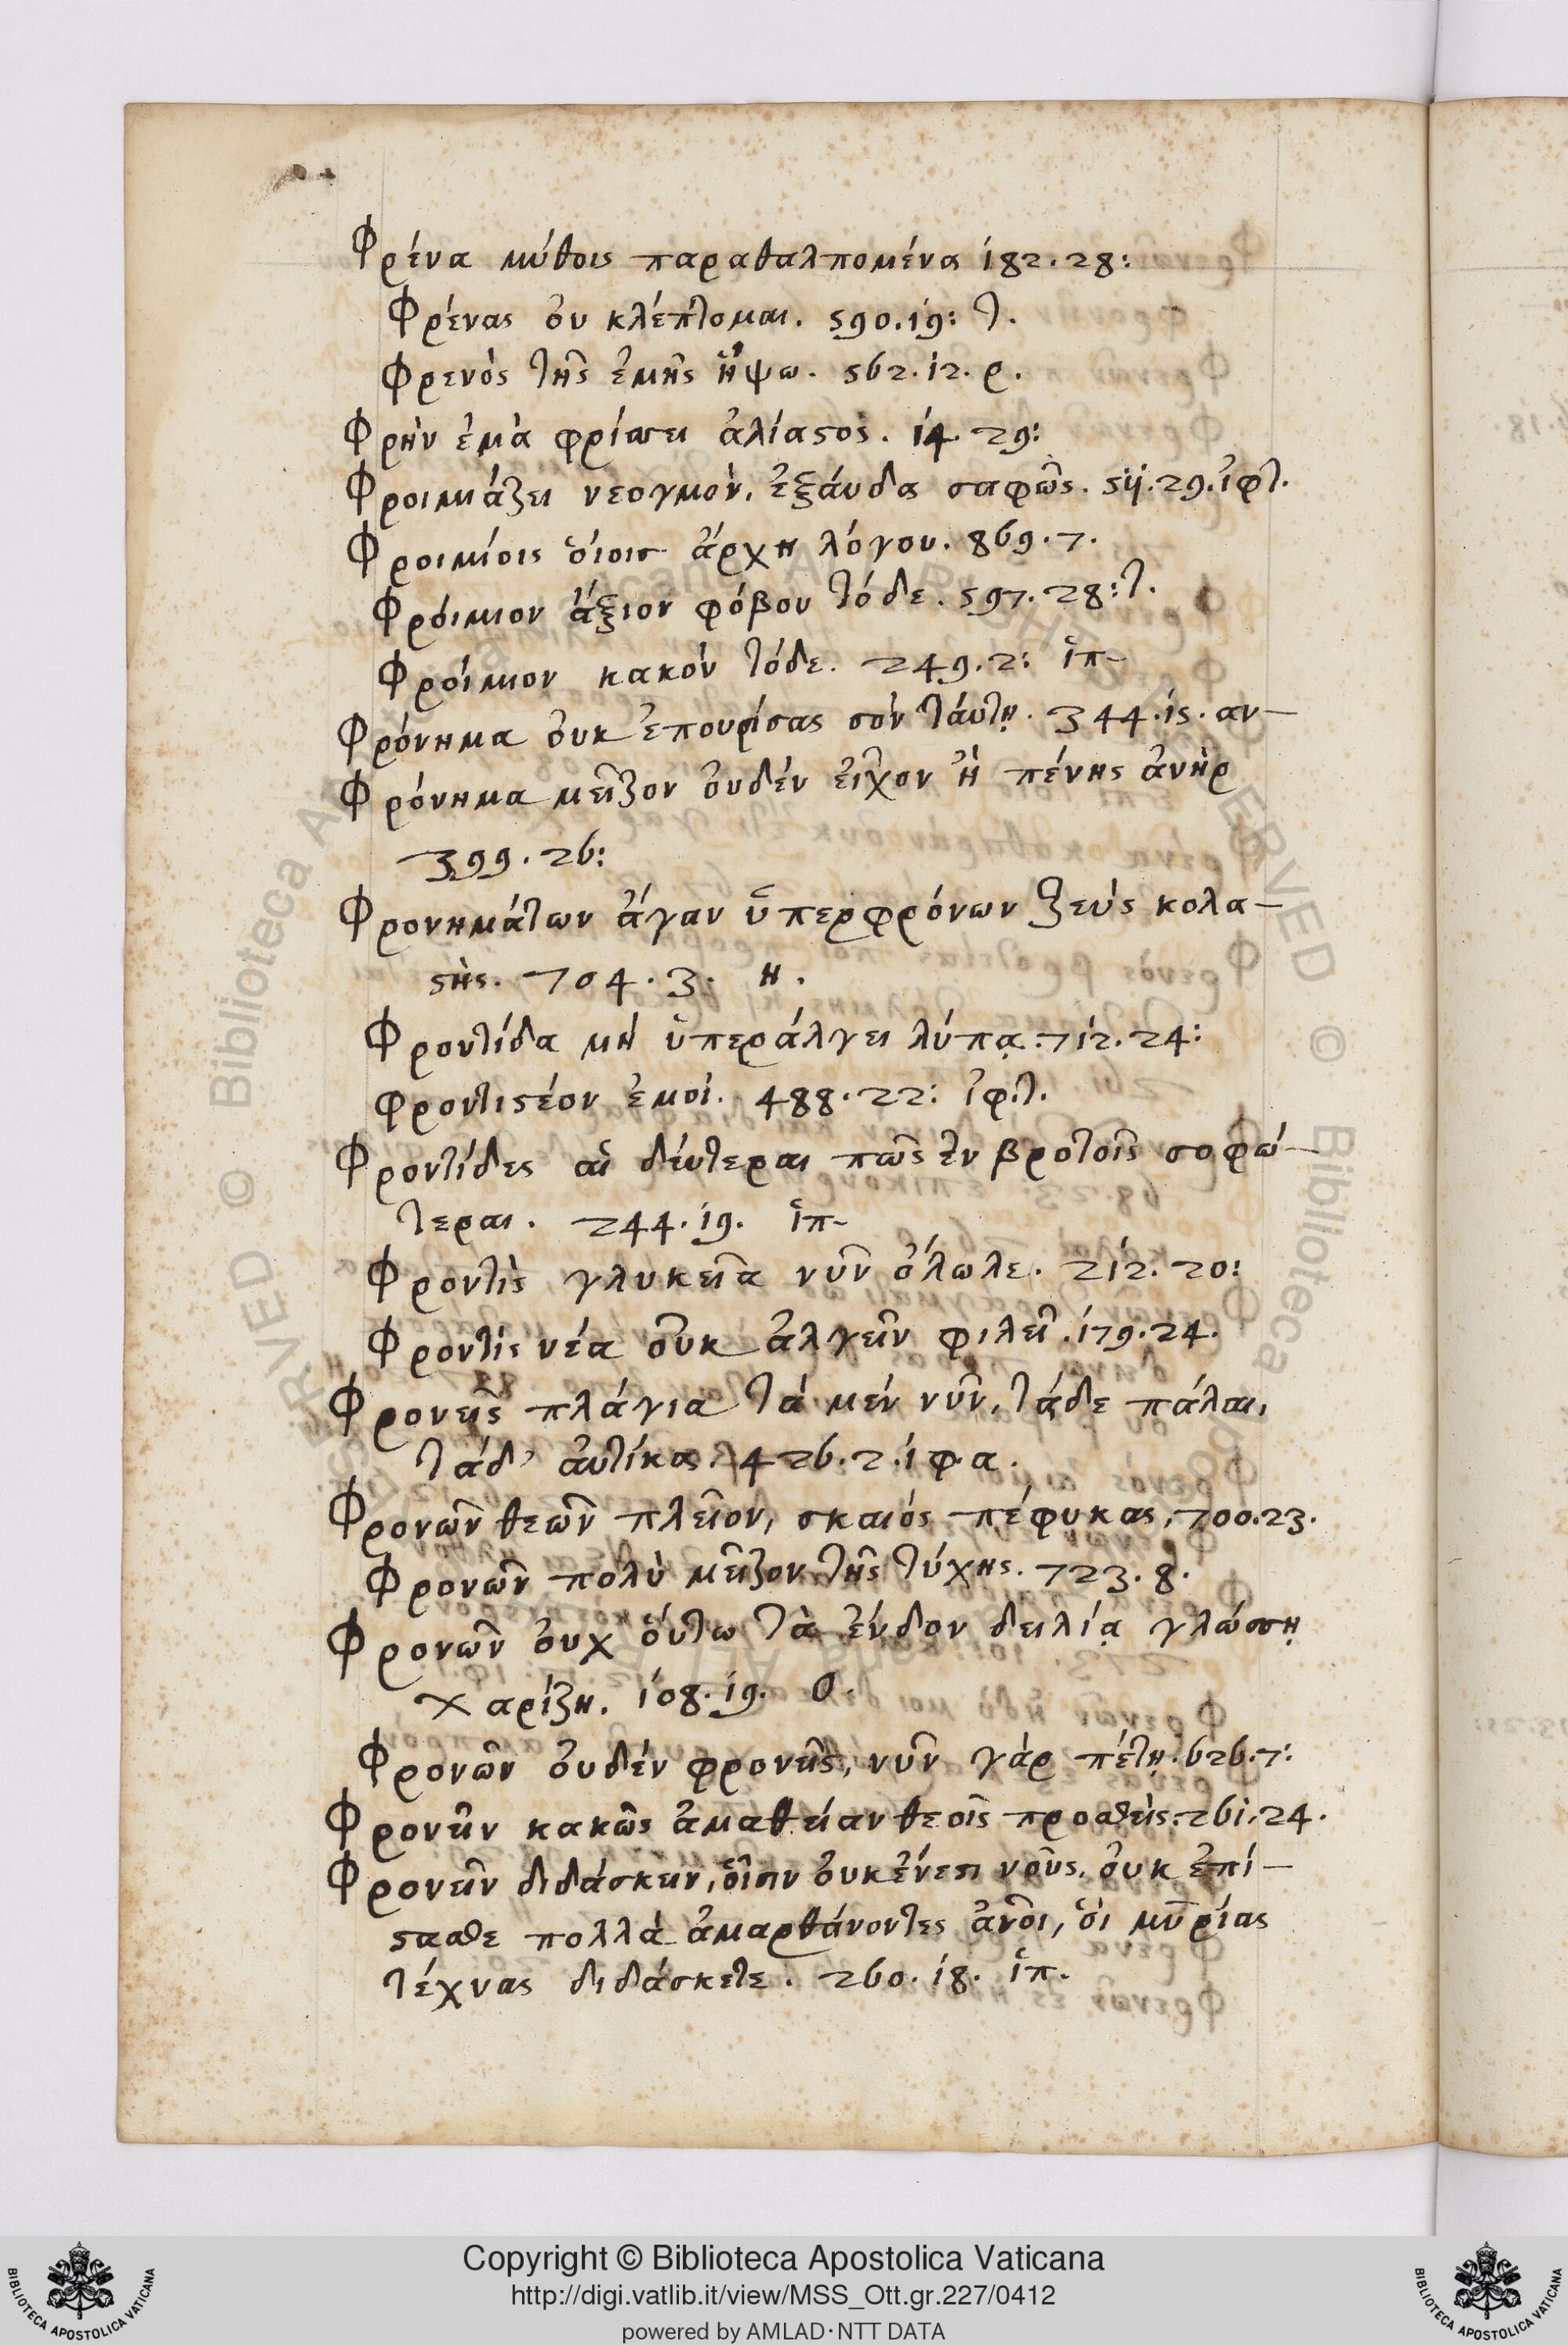 Φρένα μύθοις παραθαλπομένα 182.28:
Φρένας ὀυ κλέπτομαι. 590.19: τ.
Φρενὸς τῆς ἐμῆς ἥψω. 562.12. ρ.
Φρὴν ἐμὰ φρίσσει ἀλίαστος. 14.29:
Φροιμιάζει νεογμὸν, ἐξάυδα σαφῶς. 511.29. ἰφτ.
Φροιμίοις ὁίοισ ἄρχη λόγου. 869.7.
Φρόιμιον ἄξιον φόβου τόδε. 597.28: τ.
Φρόιμιον κακὸν τόδε. 249.2: ἱπ-
Φρόνημα ὀυκ ἐπουρίσας σὸν τάυτῃ. 344.15. αν-
Φρόνημα μεῖζον ὀυδὲν ἐῖχον ἢ πένης ἀνὴρ
399.26:
Φρονημάτων ἄγαν ὑπερφρόνων ζεὺς κολα-
στὴς. 704.3. η.
Φροντίδα μὴ ὑπεράλγει λύπᾳ. 712.24:
φροντιστέον ἐμοί. 488.22: ἰφ.τ.
Φροντίδες αἱ δέυτεραι πῶς ἐν βροτοῖς σοφώ-
τεραι. 244.19. ἱπ-
Φροντὶς γλυκεῖα νῦν ὄλωλε. 212.20:
Φροντὶς νέα ὀυκ ἀλγεῖν φιλεῖ. 179.24.
Φρονεῖς πλάγια τὰ μὲν νῦν, τάδε πάλαι,
τάδ' ἀυτίκα. 426.2. ἰφ.α.
Φρονῶν θεῶν πλεῖον, σκαιός πέφυκας, 700.23.
Φρονῶν πολὺ μεῖζον τῆς τύχης. 723.8.
Φρονῶν ὀυχ ὅυτω τὰ ἔνδον δειλίᾳ γλώσσῃ
χαρίζη. 108.19. Ο.
Φρονῶν ὀυδὲν φρονεῖς, νῦν γὰρ πέτῃ. 626.7:
Φρονεῖν κακῶς ἀμαθείαν θεοῖς προσθεὶς. 261.24.
Φρονεῖν διδάσκειν, ὁῖσιν ὀυκ ἔνεστι νοῦς, ὀυκ ἐπί-
στασθε πολλὰ ἁμαρθάνοντες ἀν̅οι, ὁι μυρίας
τέχνας διδάσκετε. 260.18. ἱπ.
© Biblioteca Apostolica Vaticana ALL RIGHTS RESERVED
Copyright © Biblioteca Apostolica Vaticana
http://digi.vatlib.it/view/MSS_Ott.gr.227/0412
powered by AMLAD·NTT DATA
BIBLIOTECA APOSTOLICA VATICANA
BIBLIOTECA APOSTOLICA VATICANA